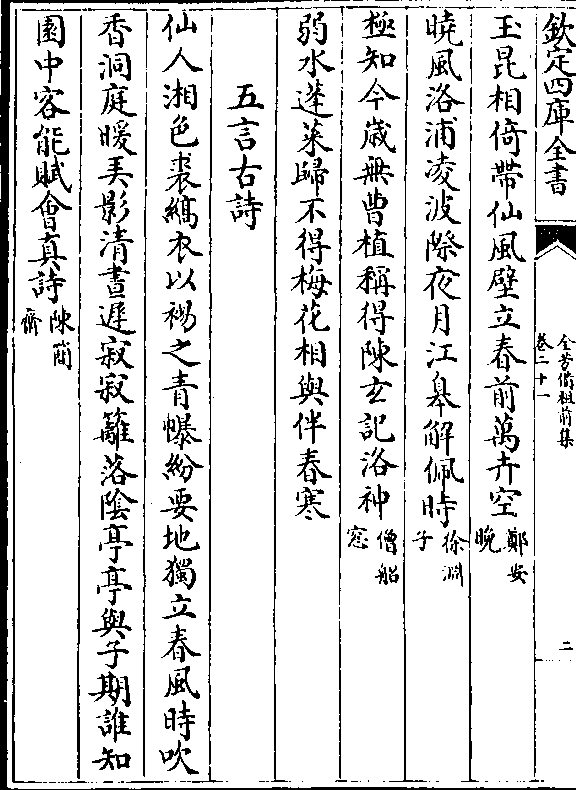 欽定四庫全書
全芳備祖前集
卷二十一
二
玉昆相倚帶仙風壁立春前萬卉空鄭安晚
曉風洛浦凌波際夜月江臯解佩時徐淵子
極知今歳無曹植稱得陳玄記洛神僧船窓
弱水蓬萊歸不得梅花相與伴春寒
五言古詩
仙人湘色裘縞衣以裼之青幰紛委地獨立春風時吹
香洞庭暖弄影清晝遲寂寂籬落陰亭亭與子期誰知
園中客能賦會真詩陳簡齋